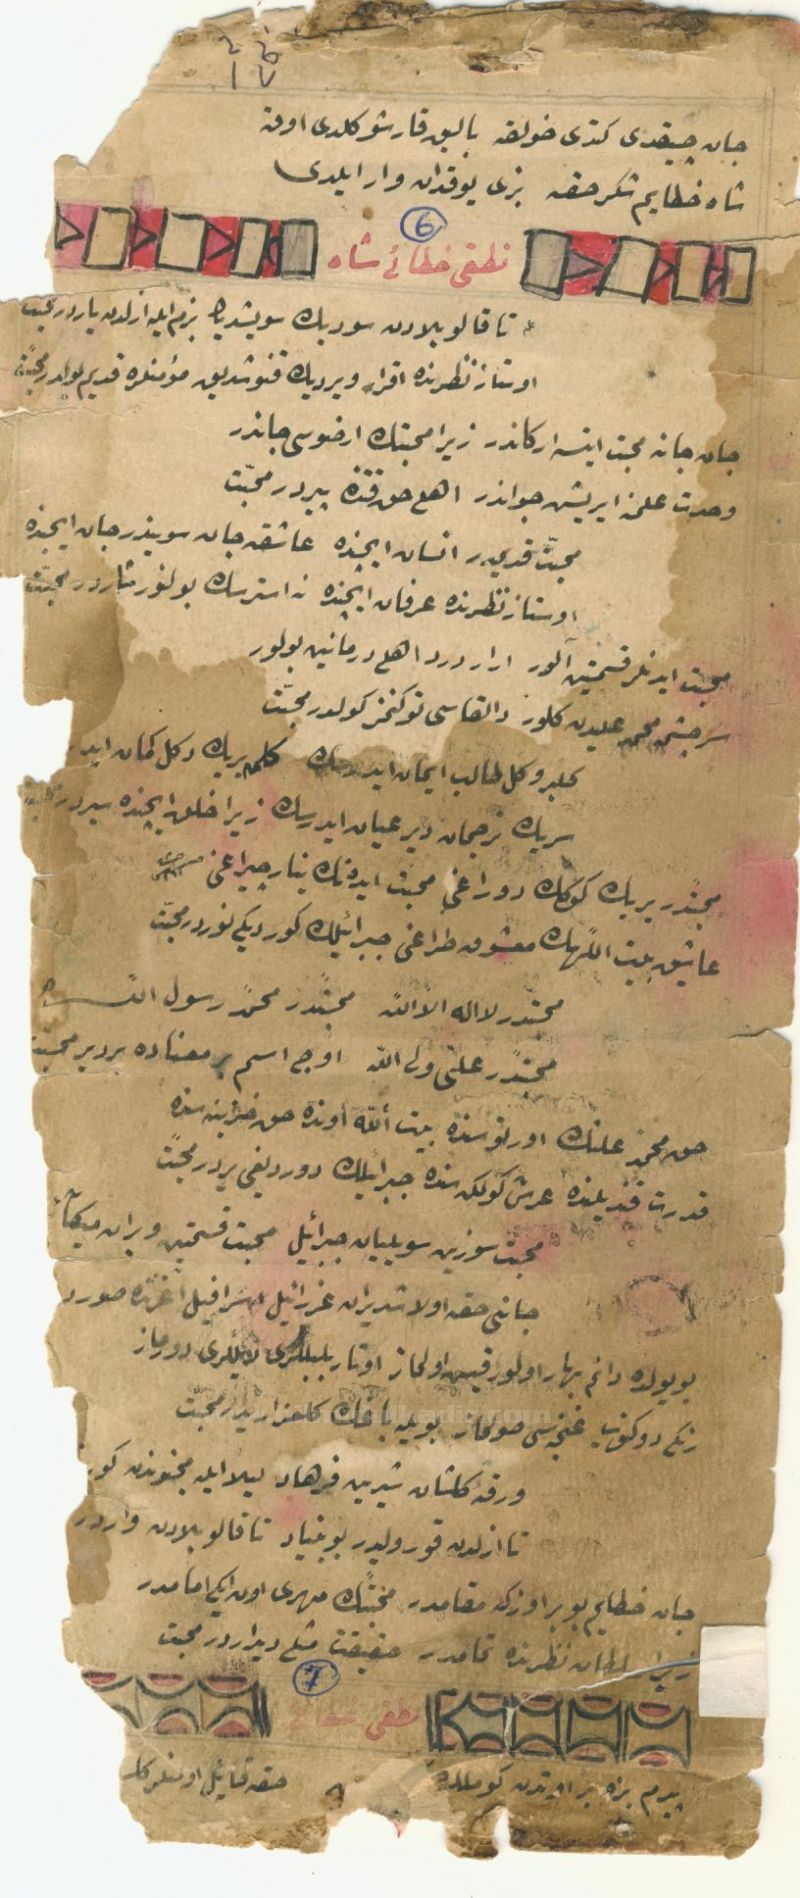 جان چیقدی کتدی خولقه بالیق قارشو کلدی اوقه
شاه خطایم شکر حقه بزی یوقدان وار ایلدی
6
نطقی خطائے شاه
تا قالو بلادن سودیك سویشدیك بزم ایله ازلدن یاردر محبت
اوستاز نظرنده اقرار ویردیك قنوشدیق مؤمنلره قدیم یولدر محبت
جان جانه محبت ایتسه ارکاندر زیرا محبتك ارضوسی جاندر
وحدت علمنه ایریشن جواندر اهل حق قتنده پیردر محبت
محبت قدیمدر انسان ایچنده عاشقه جان سویندر جان ایچنده
اوستاز نظرنده عرفان ایچنده نه استرسك بولنور شاردر محبت
محبت ایدنلر قسمتین آلور ارار درد اهلی درمانین بولور
سرچشمه محمد علیدن کلور دالقاسی توکنمز کولدر محبت
کلبرو کل طالب ایمان ایدرسك کلمه بریك دکل کمان اید
سریك ترجمان دیر عیان ایدرسك زیرا خلق ایچنده سردر
محبتدر یریك کوکك دوراغی محبت ایدنك ینار چیراغی
عاشق بیت اللهك معشوق طراغی جبرائیلك کوردیکی نوردر محبت
محبتدر لااله الا الله محبتدر محمد رسول الله
محبتدر علی ولی الله اوچ اسم بر معناده بردیر محبت
حق محمد علینك اورتوسنده بیت الله اونده حق خزینه سنده
قدرت قندیلنده عرش کولکه سنده جبرائیلك دوردیغی یردر محبت
محبت سوزین سویلیان جبرائیل محبت قسمتین ویران میکائ
جانی حقه اولاشدیران عزرائیل اسرافیل اغزنده صورد
بو یولده دائم بهار اولور قیش اولماز اوتار بلبللری لاللری دورماز
رنکی دوکنوب غنچه سی صولماز بویله باغك کلعزاریدر محبت
ورقه کلشاه شیرین فرهاد لیلا ایله مجنوندن کور
تا ازلدن قورولیدر بو بنیاد تا قالو بلادن واردر
جان خطایم بو بر اوزکه مقامدر محبتك مهری اون ایکی امامدر
زیرا نظرنده تمامدر حقیقت مثلی دیداردر محبت
7
نطقی خطائے
پیرم بزه بر اویتدن کوملدا حقه قائیل اولنلر کلـ